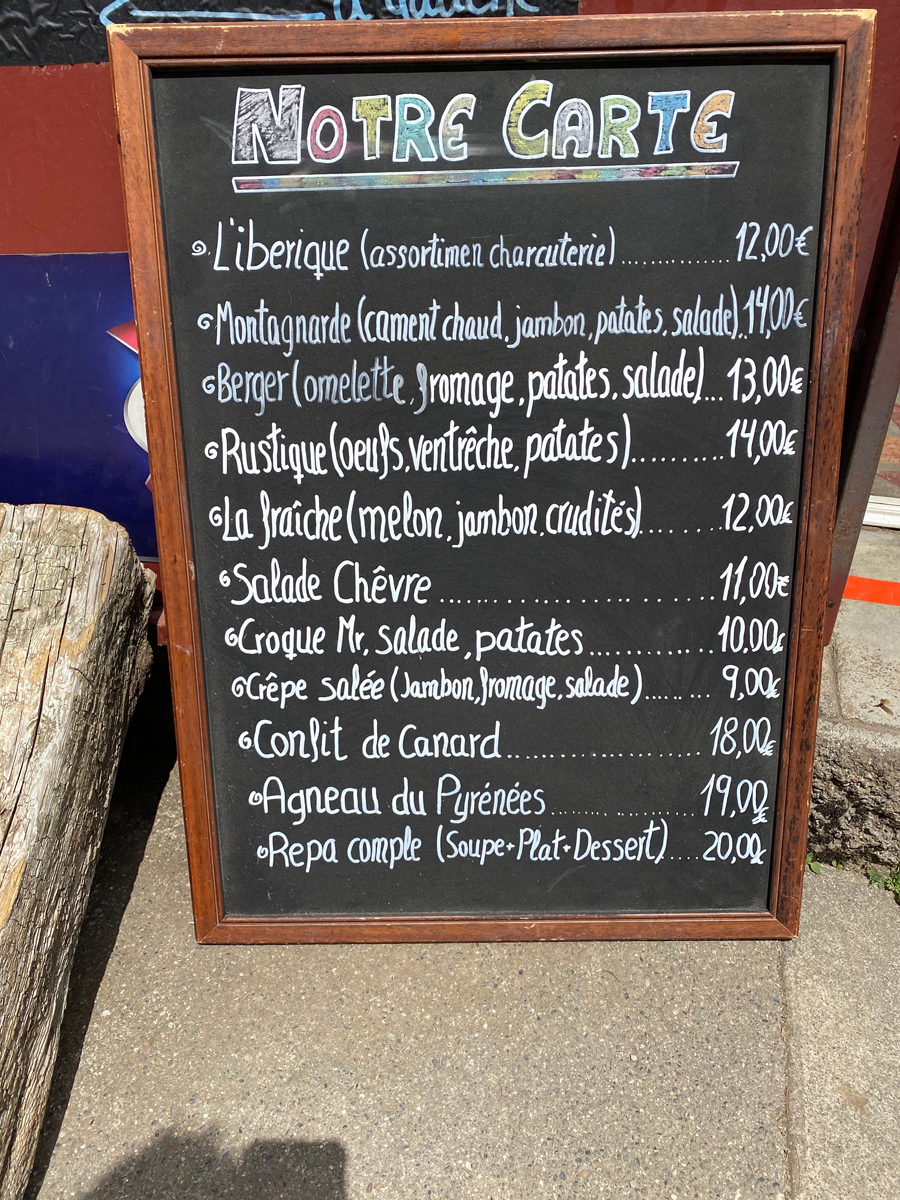 à gauche
NOTRE CARTE
L'iberique (assortimen charcuterie)..............12,00€
Montagnarde (cament chaud, jambon, patates, salade)..14,00€
Berger (omelette, fromage, patates, salade)...13,00€
Rustique (oeufs, ventrêche, patates)..........14,00€
La fraîche (melon, jambon, crudités).........12,00€
Salade Chêvre ..........................11,00€
Croque Mr, salade, patates.............10,00€
Crêpe salée (Jambon, fromage, salade)........9,00€
Confit de Canard......................18,00€
Agneau du Pyrénées ....................19,00€
Repa comple (Soupe+Plat+Dessert).....20,00€